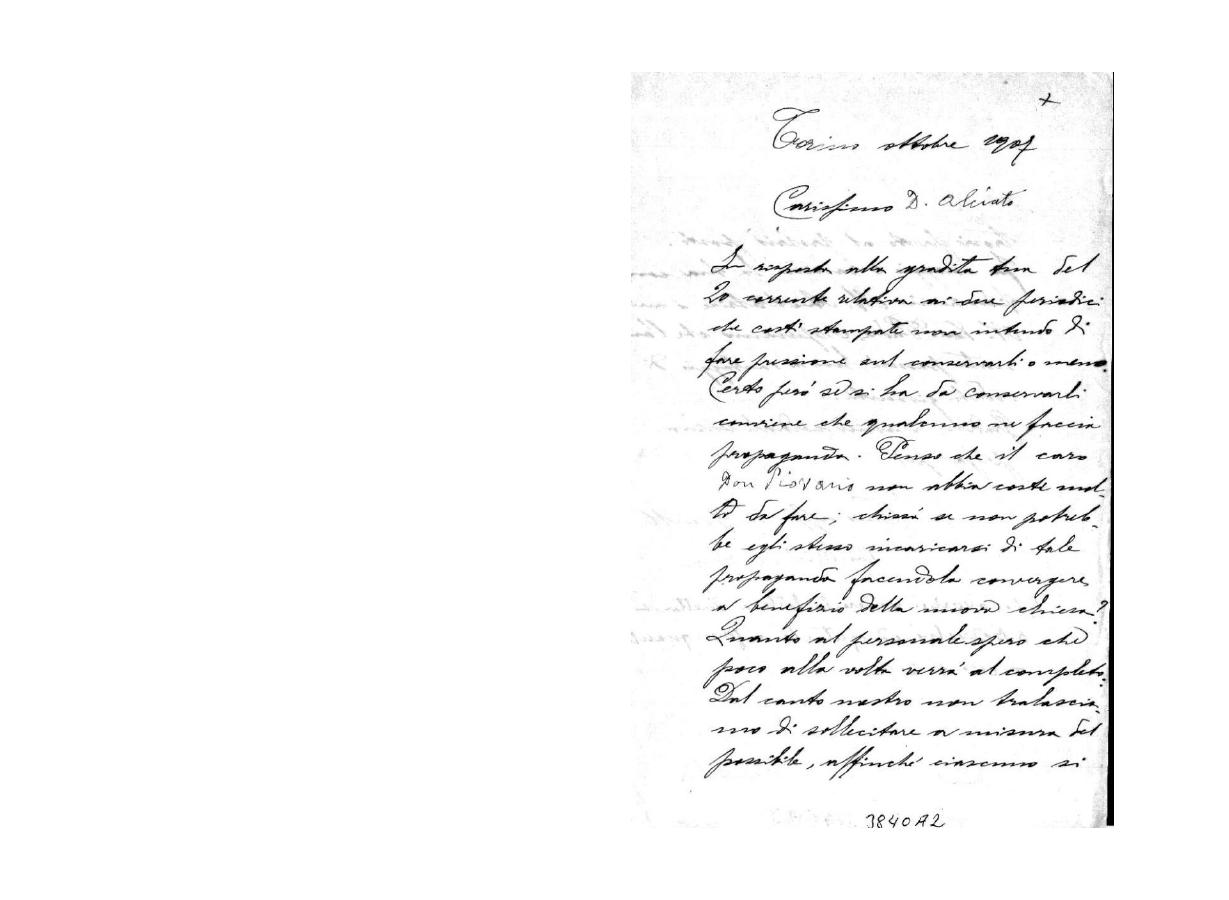 +
Torino ottobre 1907
Carissimo D. Alciato
In risposta alla gradita tua del
20 corrente relativa ai due periodici
che costì stampate non intendo di
fare pressione sul conservarli o meno.
Certo però se si ha da conservarli
conviene che qualcuno ne faccia
propaganda. Penso che il caro
Don Piovano non abbia coste mol-
to da fare; chissà se non potreb-
be egli stesso incaricarsi di tale
propaganda facendola convergere
a benefizio della nuova chiesa?
Quanto al personale spero che
poco alla volta verrà al completo.
Dal canto nostro non tralascia-
mo di sollecitare a misura del
possibile, affinché ciascuno si
3840A2